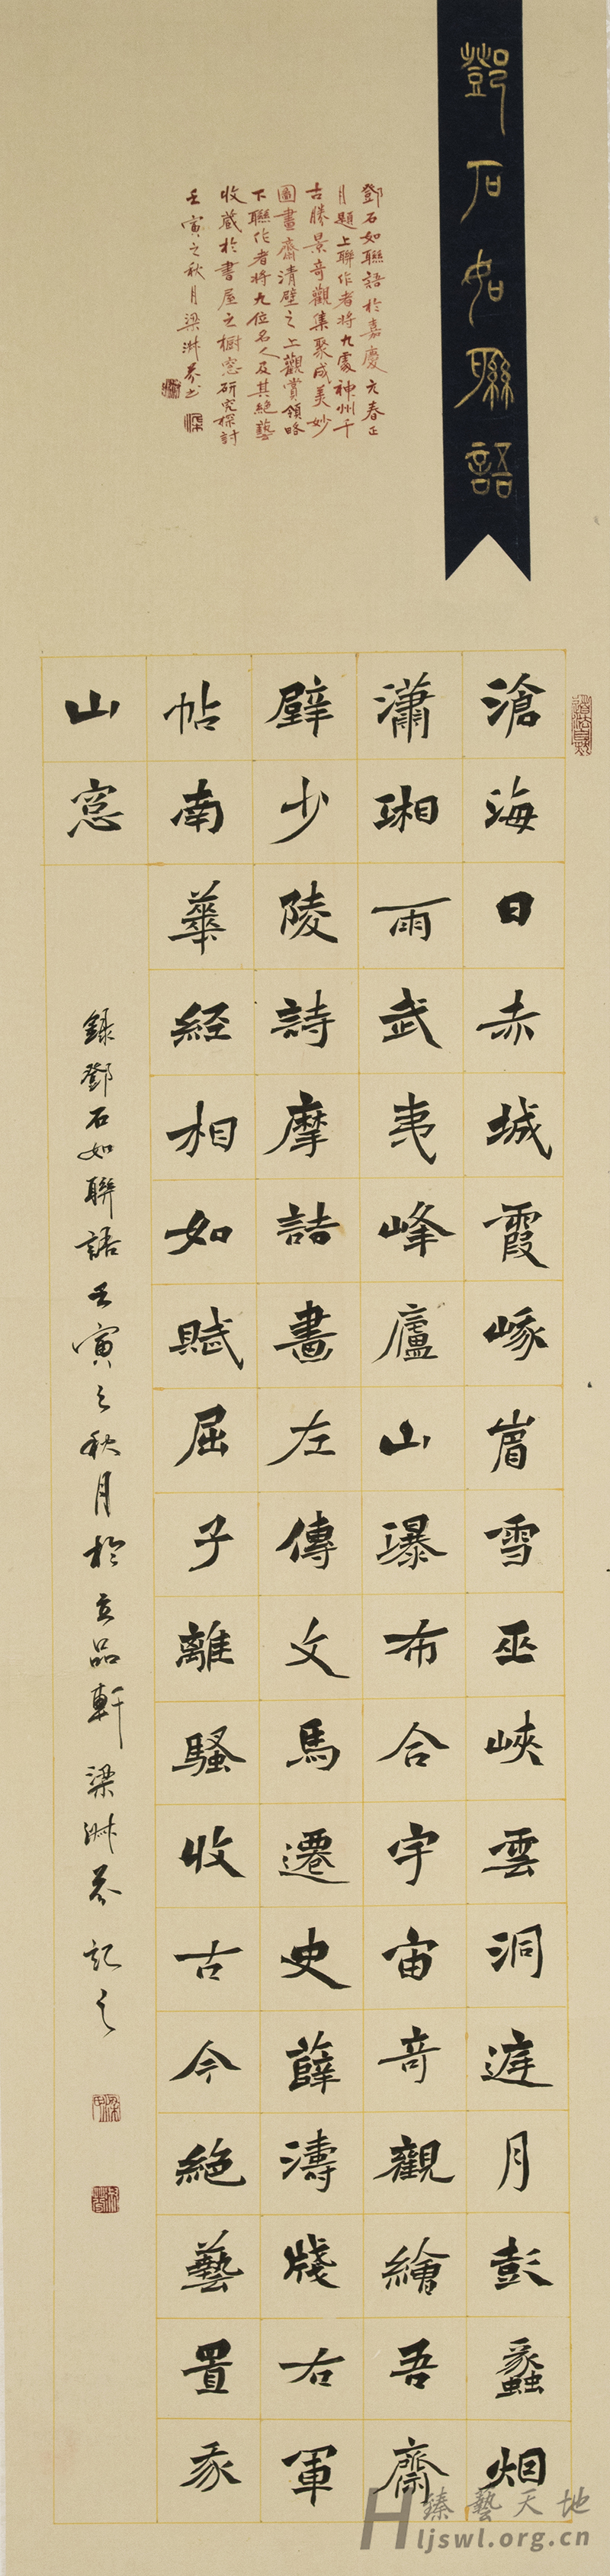 鄧石如聯語
鄧石如聯語於嘉慶元春正
月題上聯作者將九處神州千
古勝景奇觀集聚成美妙
圖畫齋清壁之上觀賞領略
下聯作者將九位名人及其絕藝
收藏於書屋之櫥窓研究探討
壬寅之秋月梁淋芬书
滄海日赤城霞峨眉雪巫峽雲洞庭月彭蠡烟
瀟湘雨武夷峰廬山瀑布合宇宙奇觀繪吾齋
壁少陵詩摩詰畫左傳文馬遷史薛濤牋右軍
帖南華經相如賦屈子離騷收古今絕藝置我
山窓
錄鄧石如聯語壬寅之秋月於立品軒梁淋芬記之
臻藝天地
ljswl.org.cn